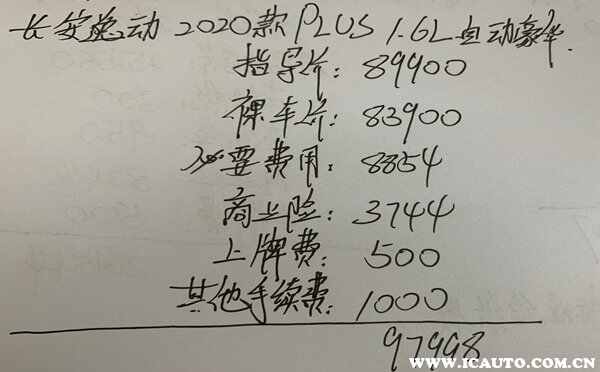 长安逸动 2020款 PLUS 1.6L自动豪华
指导价: 89900
裸车价: 83900
必要费用: 8854
商业险: 3744
上牌费: 500
其他手续费: 1000
97998
WWW.ICAUTO.COM.CN